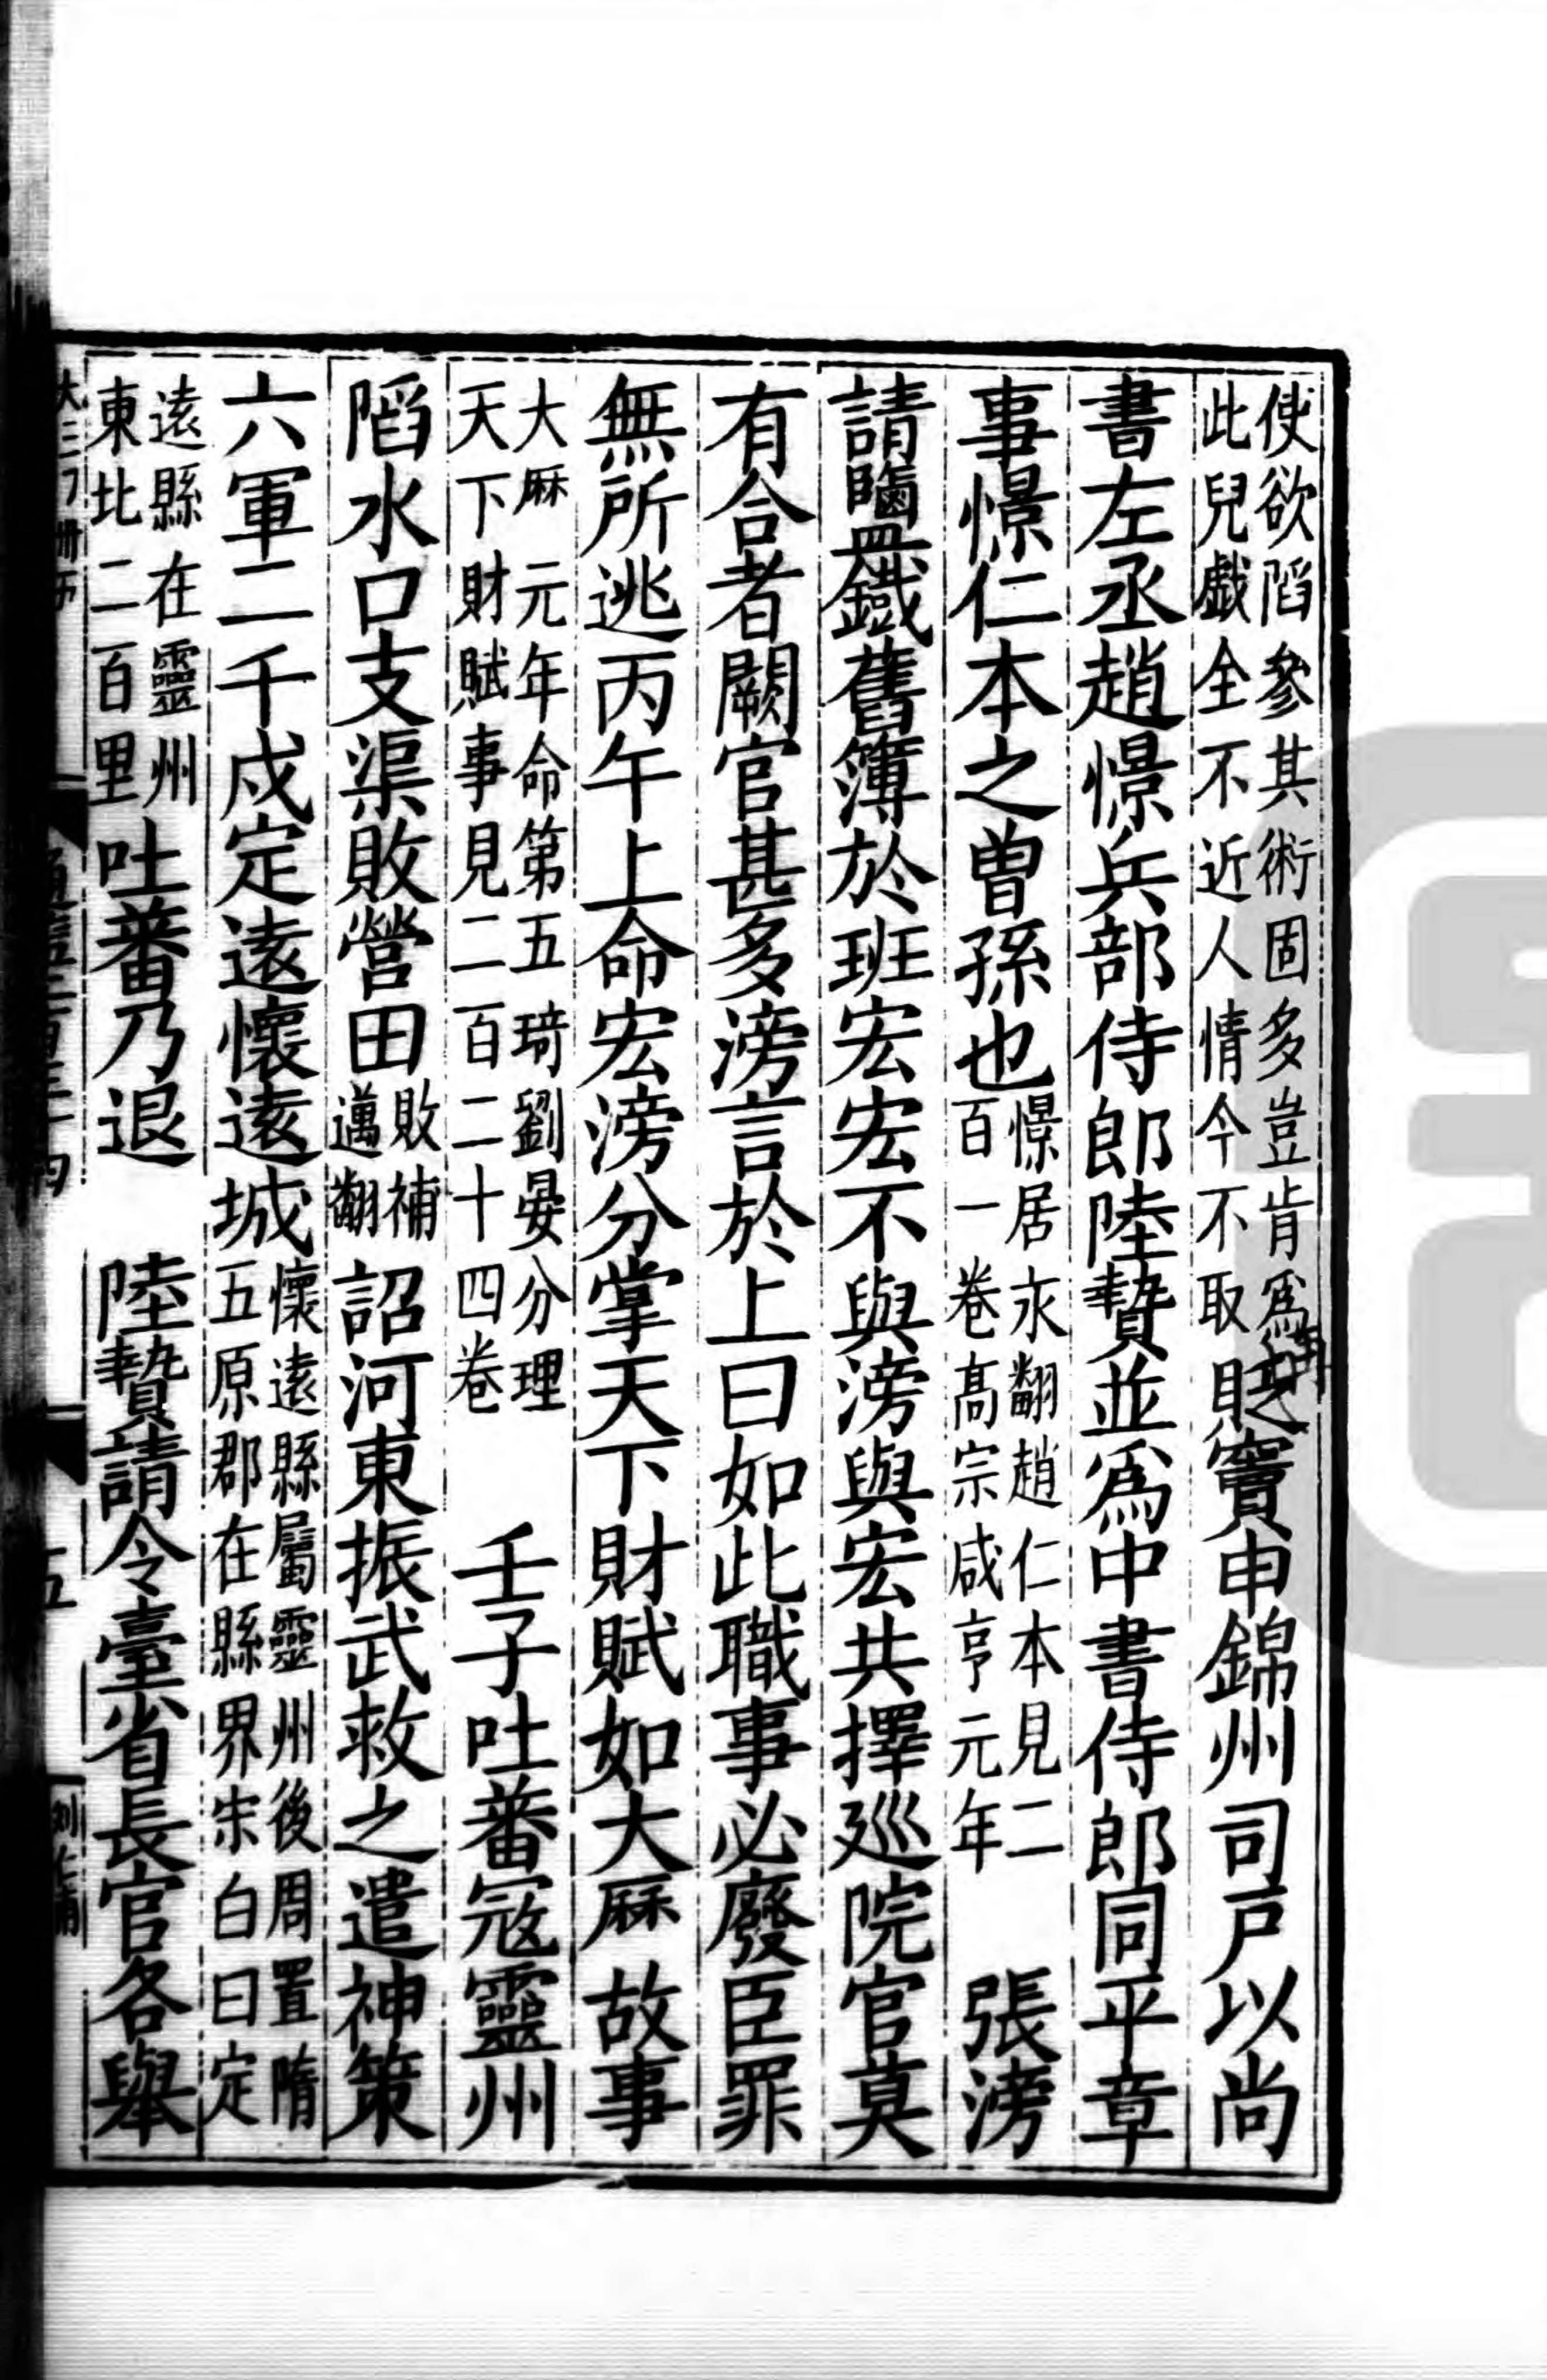 使欲䧟參其術固多豈肯爲
此兒戲全不近人情今不取貶竇申錦州司戸以尚
書左丞趙憬兵部侍郎陸贄並爲中書侍郎同平章
事憬仁本之曽孫也憬居永翻趙仁本見二
百一卷髙宗咸亨元年張滂
請鹽鐵舊簿於班宏宏不與滂與宏共擇廵院官莫
有合者闕官甚多滂言於上曰如此職事必廢臣罪
無所逃丙午上命宏滂分掌天下財賦如大厤故事
大厤元年命第五琦劉晏分理
天下財賦事見二百二十四卷壬子吐蕃冦靈州
䧟水口支渠敗營田敗補
邁翻詔河東振武救之遣神策
六軍二千戍定逺懷逺城懷逺縣屬靈州後周置隋
五原郡在縣界宋白曰定
逺縣在靈州
東北二百里吐蕃乃退陸贄請令臺省長官各舉